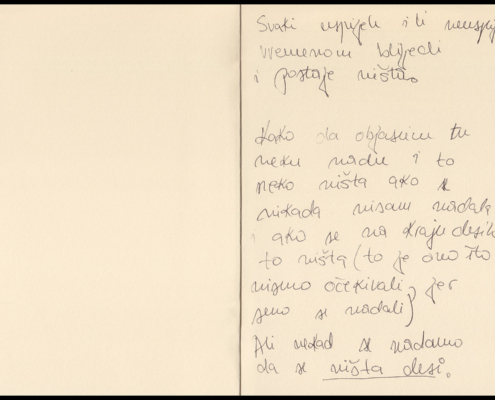 Svaki uspjeh ili neuspj
vremenom blijedi
i postaje ništa.
Kako da objasnim tu
neku nadu i to
neko ništa ako se
nikada nisam nadala
i ako se na kraju desilo
to ništa (to je ono što
nismo očekivali, jer
smo se nadali)
Ali nekad se nadamo
da se ništa desi.